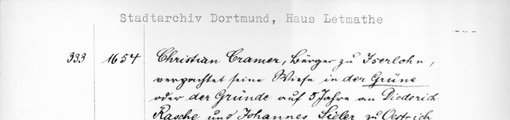 Stadtarchiv Dortmund, Haus Letmathe
333 1654 Christian Cramer, Bürger zu Iserlohn,
verpachtet seine Wiese in der Grüne
oder der Gründe auf 5 Jahre an Diederich
Rasche und Johannes Sieler zu Oestrich